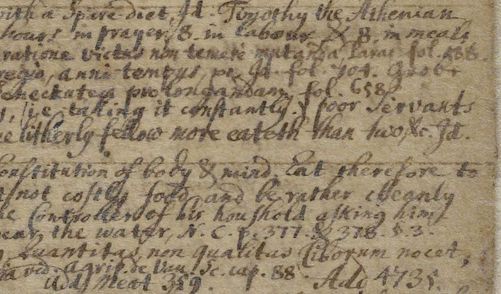 with a spare diet, Id. Timothy the Athenian
hours in prayer, 8. in labour & 8. in meals
ratione victus non temere mutanda Parae fol. 588.
anno tempus, pr. Id. fol. 704.
senectutem prolongandam, fol. 658
s, i.e. taking it constantly. poor Servants
litherly fellow more eateth than two, &c. Id.
Constitution of body & mind. Eat therefore to
not costly food, and be rather cleanly
he Controller of his houshold asking him
the water, N. C. p. 377. & 378. §. 3.
Quantitas, non qualitas Ciborum nocet,
vid. agrip. de Van. Sc. cap. 88
vid. Meat 359. Add 4735.